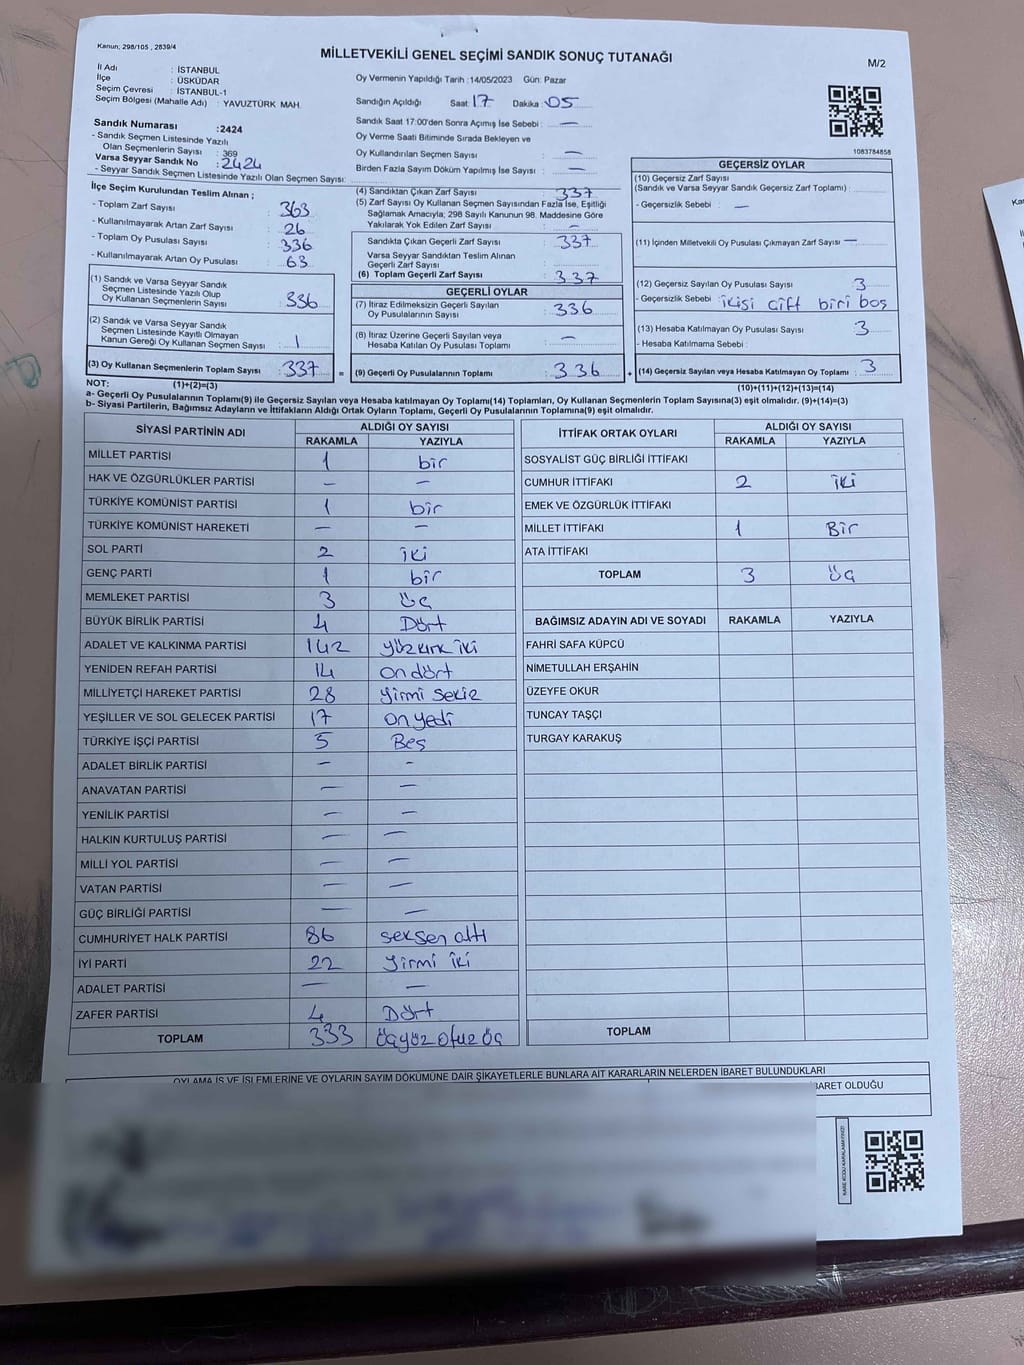 Kanun: 298/105 , 2839/4
MİLLETVEKİLİ GENEL SEÇİMİ SANDIK SONUÇ TUTANAĞI
M/2
İl Adı : İSTANBUL
İlçe : ÜSKÜDAR
Seçim Çevresi : İSTANBUL-1
Seçim Bölgesi (Mahalle Adı) : YAVUZTÜRK MAH.
Sandık Numarası :2424
- Sandık Seçmen Listesinde Yazılı
Olan Seçmenlerin Sayısı : 369
Varsa Seyyar Sandık No : 2424
- Seyyar Sandık Seçmen Listesinde Yazılı Olan Seçmen Sayısı:
Oy Vermenin Yapıldığı Tarih :14/05/2023 Gün: Pazar
Sandığın Açıldığı Saat: 17 Dakika: 05
Sandık Saat 17:00'den Sonra Açımış İse Sebebi : —
Oy Verme Saati Bitiminde Sırada Bekleyen ve
Oy Kullandırılan Seçmen Sayısı : —
Birden Fazla Sayım Döküm Yapılmış İse Sayısı : —
1083784858
İlçe Seçim Kurulundan Teslim Alınan ;
- Toplam Zarf Sayısı : 363
- Kullanılmayarak Artan Zarf Sayısı : 26
- Toplam Oy Pusulası Sayısı : 336
- Kullanılmayarak Artan Oy Pusulası : 63
(1) Sandık ve Varsa Seyyar Sandık
Seçmen Listesinde Yazılı Olup
Oy Kullanan Seçmenlerin Sayısı : 336
(2) Sandık ve Varsa Seyyar Sandık
Seçmen Listesinde Kayıtlı Olmayan
Kanun Gereği Oy Kullanan Seçmen Sayısı : 1
(3) Oy Kullanan Seçmenlerin Toplam Sayısı : 337
(4) Sandıktan Çıkan Zarf Sayısı : 337
(5) Zarf Sayısı Oy Kullanan Seçmen Sayısından Fazla İse, Eşitliği
Sağlamak Amacıyla; 298 Sayılı Kanunun 98. Maddesine Göre
Yakılarak Yok Edilen Zarf Sayısı : —
Sandıkta Çıkan Geçerli Zarf Sayısı : 337
Varsa Seyyar Sandıktan Teslim Alınan
Geçerli Zarf Sayısı :
(6) Toplam Geçerli Zarf Sayısı : 337
GEÇERLİ OYLAR
(7) İtiraz Edilmeksizin Geçerli Sayılan
Oy Pusulalarının Sayısı : 336
(8) İtiraz Üzerine Geçerli Sayılan veya
Hesaba Katılan Oy Pusulası Toplamı : —
= (9) Geçerli Oy Pusulalarının Toplamı : 336
GEÇERSİZ OYLAR
(10) Geçersiz Zarf Sayısı
(Sandık ve Varsa Seyyar Sandık Geçersiz Zarf Toplamı) :
- Geçersizlik Sebebi : —
(11) İçinden Milletvekili Oy Pusulası Çıkmayan Zarf Sayısı —
(12) Geçersiz Sayılan Oy Pusulası Sayısı : 3
- Geçersizlik Sebebi : ikisi çift biri boş
(13) Hesaba Katılmayan Oy Pusulası Sayısı : 3
- Hesaba Katılmama Sebebi :
+ (14) Geçersiz Sayılan veya Hesaba Katılmayan Oy Toplamı : 3
NOT: (1)+(2)=(3)
(10)+(11)+(12)+(13)=(14)
a- Geçerli Oy Pusulalarının Toplamı(9) ile Geçersiz Sayılan veya Hesaba katılmayan Oy Toplamı(14) Toplamları, Oy Kullanan Seçmenlerin Toplam Sayısına(3) eşit olmalıdır. (9)+(14)=(3)
b- Siyasi Partilerin, Bağımsız Adayların ve İttifakların Aldığı Ortak Oyların Toplamı, Geçerli Oy Pusulalarının Toplamına(9) eşit olmalıdır.
SİYASİ PARTİNİN ADI ALDIĞI OY SAYISI
RAKAMLA YAZIYLA
MİLLET PARTİSİ 1 bir
HAK VE ÖZGÜRLÜKLER PARTİSİ — —
TÜRKİYE KOMÜNİST PARTİSİ 1 bir
TÜRKİYE KOMÜNİST HAREKETİ — —
SOL PARTİ 2 iki
GENÇ PARTİ 1 bir
MEMLEKET PARTİSİ 3 üç
BÜYÜK BİRLİK PARTİSİ 4 Dört
ADALET VE KALKINMA PARTİSİ 142 yüzkırk iki
YENİDEN REFAH PARTİSİ 14 on dört
MİLLİYETÇİ HAREKET PARTİSİ 28 yirmi sekiz
YEŞİLLER VE SOL GELECEK PARTİSİ 17 on yedi
TÜRKİYE İŞÇİ PARTİSİ 5 Beş
ADALET BİRLİK PARTİSİ — -
ANAVATAN PARTİSİ — —
YENİLİK PARTİSİ — —
HALKIN KURTULUŞ PARTİSİ — —
MİLLİ YOL PARTİSİ — —
VATAN PARTİSİ — —
GÜÇ BİRLİĞİ PARTİSİ — —
CUMHURİYET HALK PARTİSİ 86 seksen altı
İYİ PARTİ 22 yirmi iki
ADALET PARTİSİ — —
ZAFER PARTİSİ 4 Dört
TOPLAM 333 üçyüz otuz üç
İTTİFAK ORTAK OYLARI ALDIĞI OY SAYISI
RAKAMLA YAZIYLA
SOSYALİST GÜÇ BİRLİĞİ İTTİFAKI
CUMHUR İTTİFAKI 2 iki
EMEK VE ÖZGÜRLÜK İTTİFAKI
MİLLET İTTİFAKI 1 Bir
ATA İTTİFAKI
TOPLAM 3 üç
BAĞIMSIZ ADAYIN ADI VE SOYADI RAKAMLA YAZIYLA
FAHRİ SAFA KÜPCÜ
NİMETULLAH ERŞAHİN
ÜZEYFE OKUR
TUNCAY TAŞÇI
TURGAY KARAKUŞ
TOPLAM
OYLAMA İŞ VE İŞLEMLERİNE VE OYLARIN SAYIM DÖKÜMÜNE DAİR ŞİKAYETLERLE BUNLARA AİT KARARLARIN NELERDEN İBARET BULUNDUKLARI
İBARET OLDUĞU
KARE KODU KARALAMAYINIZ!